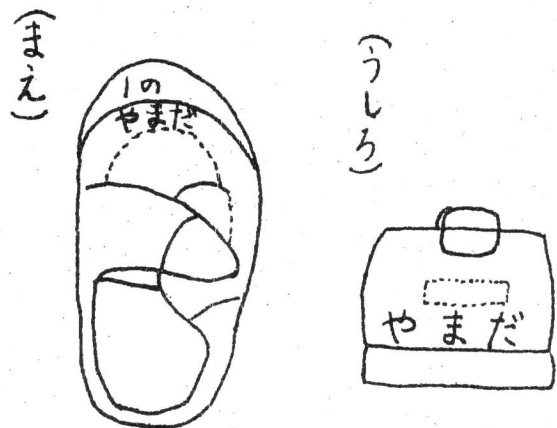 (まえ)
1の
やまだ
(うしろ)
やまだ